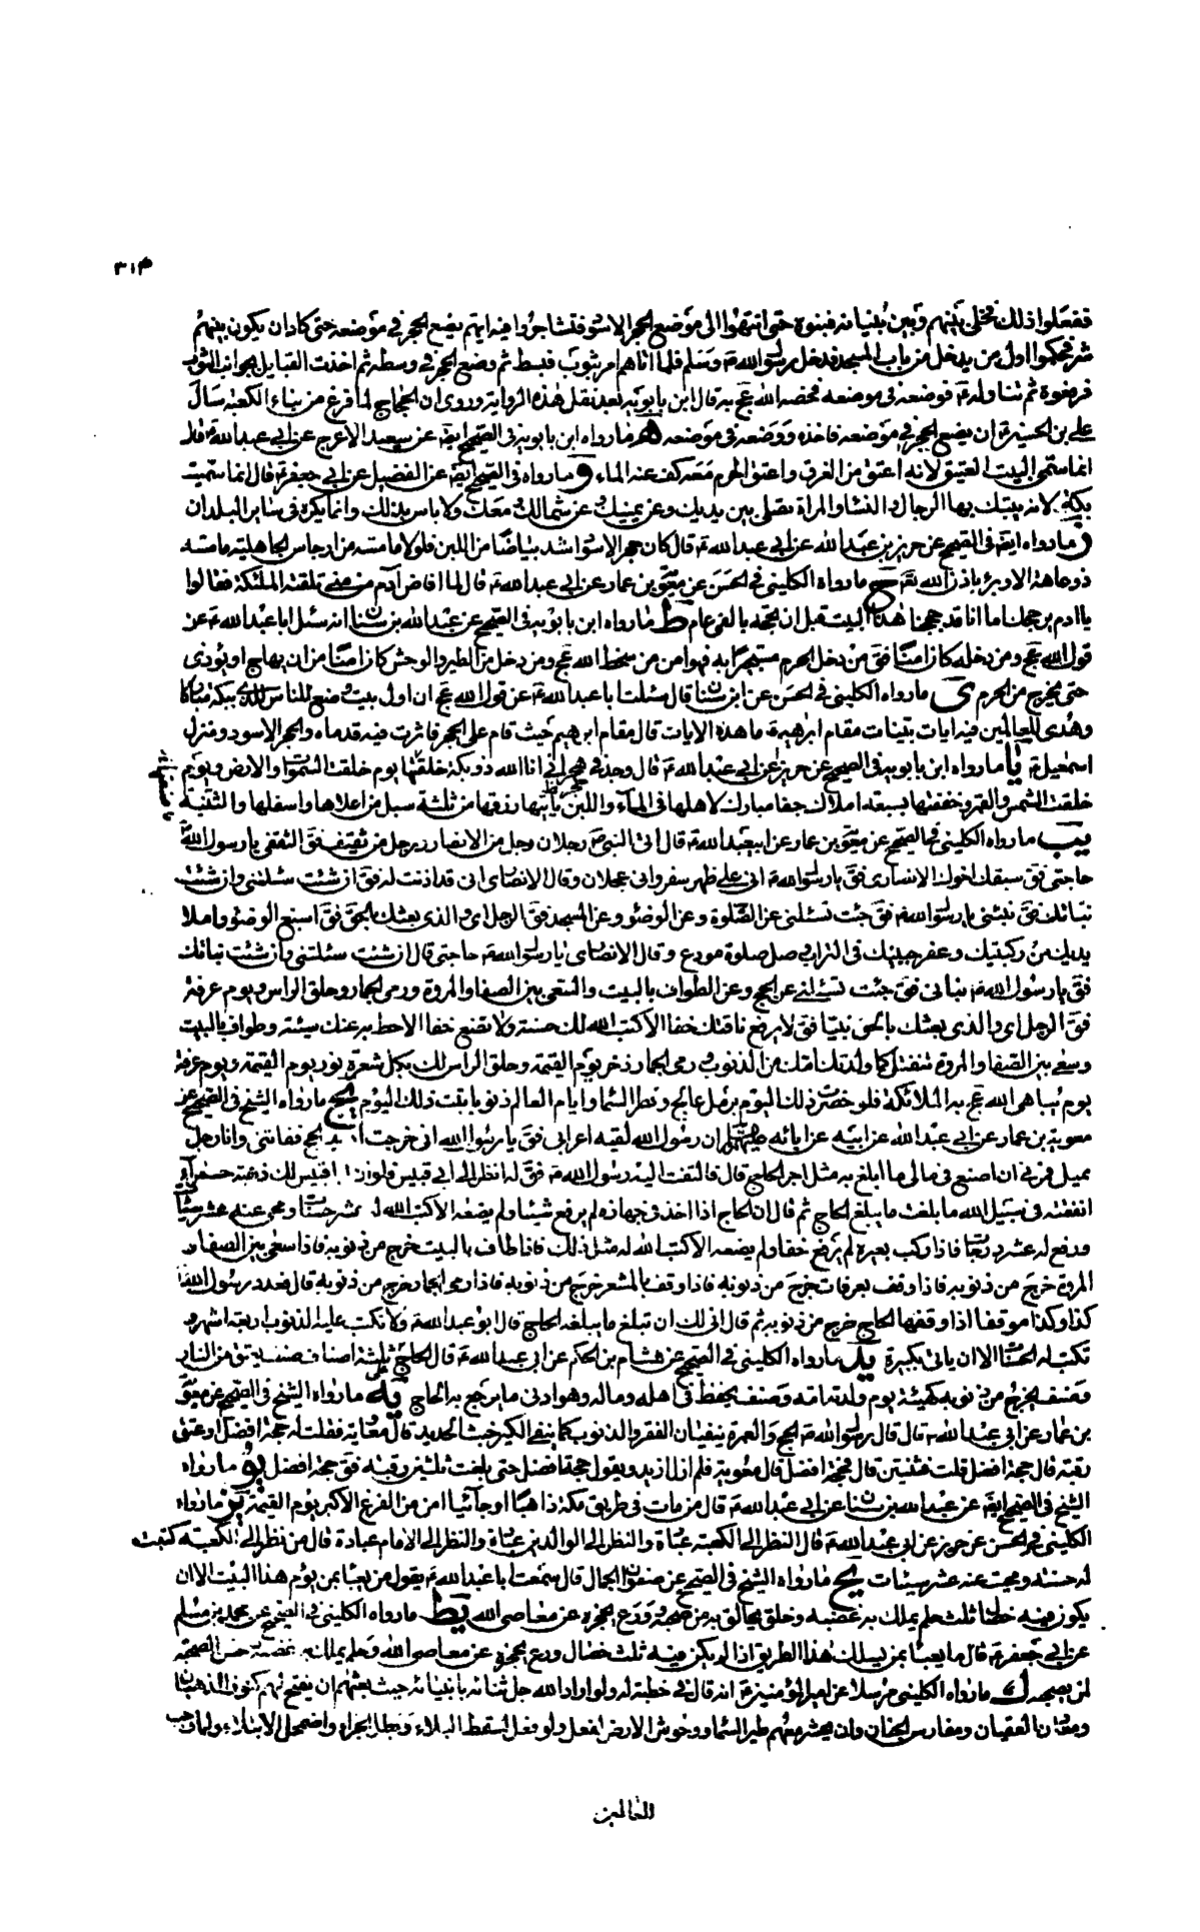 ٣١٣
ففعلوا ذلك فخلى بينهم وبين بنيانه فبنوه حتى انتهوا الى موضع الحجر الاسود فتشاجروا فيه ايهم يضع الحجر في موضعه حتى كاد ان يكون بينهم
شر فحكموا اول من يدخل من باب المسجد فدخل رسول الله ص وسلم فلما اتاهم امر بثوب فبسط ثم وضع الحجر في وسطه ثم اخذت القبايل بجوانب الثوب
فرفعوه ثم تناوله ص فوضعه في موضعه فخصه الله عج به قال ابن بابويه بعد نقل هذه الرواية وروى ان الحجاج لما فرغ من بناء الكعبة سال
علي بن الحسين ع ان يضع الحجر في موضعه فاخذه ووضعه في موضعه ه ما رواه ابن بابويه في الصحيح ايضا عن سعيد الاعرج عن ابي عبد الله ع قال
انما سمى البيت العتيق لانه اعتق من الغرق واعتق الحرم معه كف عنه الماء و ما رواه في الصحيح ايضا عن الفضيل عن ابي جعفر ع قال انما سميت
بكة لانه يبتك بها الرجال والنساء والمراة تصلى بين يديك وعن يمينك وعن شمالك ومعك ولا باس بذلك وانما يكره في ساير البلدان
ز ما رواه ايضا في الصحيح عن حريز بن عبد الله عن ابي عبد الله ع قال كان حجر الاسود اشد بياضا من اللبن فلولا ما مسه من ارجاس الجاهلية ما مسه
ذو عاهة الا برئ باذن الله تع ح ما رواه الكليني في الحسن عن معوية بن عمار عن ابي عبد الله ع قال لما افاض آدم من منى تلقته الملئكة فقالوا
يا ادم بر حجك اما انا قد حججنا هذا البيت قبل ان تحجه بالفى عام ط ما رواه ابن بابويه في الصحيح عن عبد الله بن سنان انه سئل ابا عبد الله ع عن
قول الله عج ومن دخله كان امنا فق من دخل الحرم مستجيرا به فهو امن من سخط الله عج ومن دخل من الطير والوحش كان امنا من ان يهاج او يؤذى
حتى يخرج من الحرم ى ما رواه الكليني في الحسن عن ابن سنان قال سئلت ابا عبد الله ع عن قول الله عج ان اول بيت وضع للناس للذى ببكة مباركا
وهدى للعالمين فيه ايات بينات مقام ابرهيم ما هذه الايات قال مقام ابرهيم حيث قام على الحجر فاثرت فيه قدماه والحجر الاسود ومنزل
اسمعيل ع يا ما رواه ابن بابويه في الصحيح عن حريز عن ابي عبد الله ع قال وجد في حجر اني انا الله ذو بكة خلقتها يوم خلقت السموات والارض ويوم
خلقت الشمس والقمر وخففتها بسبعة املاك حفا مبارك لاهلها في الماء واللبن ياتيها رزقها من ثلثة سبل من اعلاها واسفلها والثنية
يب ما رواه الكليني في الصحيح عن معوية بن عمار عن ابيعبد الله ع قال اتى النبي ص رجلان رجل من الانصار ورجل من ثقيف فق الثقفى يا رسول الله
حاجتي فق سبقك اخوك الانصارى فق يا رسول الله ص اني على ظهر سفر وانى عجلان وقال الانصارى انى قد اذنت له فق ان شئت سئلتنى وان شئت
نباتك فق نبئنى يا رسول الله ص فق جئت تسئلنى عن الصلوة وعن الوضوء وعن المسجد فق الرجل اى والذى بعثك بالحق فق اسبغ الوضوء واملا
يديك من ركبتيك وعفر جبينك في التراب وصل صلوة مودع وقال الانصارى يا رسول الله ص حاجتى قال ان شئت سئلتنى وان شئت نباتك
فق يا رسول الله ص نبانى فق جئت تسئلنى عن الحج وعن الطواف بالبيت والسعى بين الصفا والمروة ورمى الجمار وحلق الراس ويوم عرفة
فق الرجل اى والذى بعثك بالحق نبيا فق لا يرفع ناقتك خفا الا كتب الله لك حسنة ولا تضع خفا الا حط به عنك سيئة وطواف بالبيت
وسعى بين الصفا والمروة تنفتل كما ولدتك امك من الذنوب ورمى الجمار ذخر يوم القيمة وحلق الراس لك بكل شعرة نور يوم القيمة ويوم عرفة
يوم يباهى الله عج به الملائكة فلو حضرت ذلك اليوم برمل عالج وقطر السماء وايام العالم ذنوبا بتت ذلك اليوم يج ما رواه الشيخ في الصحيح عن
معوية بن عمار عن ابي عبد الله عن ابيه عن ابائه ع ان رسول الله لقيه اعرابى فق يا رسول الله انى خرجت اريد الحج ففاتنى وانا رجل
مميل فمرنى ان اصنع في مالى ما ابلغ به مثل اجر الحاج قال فالتفت اليه رسول الله ص فق له انظر الى ابى قبيس فلو ان ابا قبيس لك ذهبة حمراء
انفقته في سبيل الله ما بلغت ما يبلغ الحاج ثم قال ان الحاج اذا اخذ في جهازه لم يرفع شيئا ولم يضعه الا كتب الله له عشر حسنات ومحى عنه عشر سيئات
ورفع له عشر درجات فاذا ركب بعيره لم يرفع خفا ولم يضعه الا كتب الله له مثل ذلك فاذا طاف بالبيت خرج من ذنوبه فاذا سعى بين الصفا و
المروة خرج من ذنوبه فاذا وقف بعرفات خرج من ذنوبه فاذا وقف بالمشعر خرج من ذنوبه فاذا رمى الجمار خرج من ذنوبه قال فعدد رسول الله
كذا وكذا موقفا اذا وقفها الحاج خرج من ذنوبه ثم قال انى لك ان تبلغ ما يبلغه الحاج قال ابو عبد الله ع ولا تكتب عليه الذنوب اربعة اشهر و
تكتب له الحسنات الا ان ياتى بكبيرة يد ما رواه الكليني في الصحيح عن هشام بن الحكم عن ابى عبد الله ع قال الحاج على ثلثة اصناف صنف يعتق من النار
وصنف يخرج من ذنوبه كهيئة يوم ولدته امه وصنف يحفظ في اهله وماله وهو ادنى ما يرجع به الحاج يه ما رواه الشيخ في الصحيح عن معوية
بن عمار عن ابى عبد الله ع قال قال رسول الله ص الحج والعمرة ينفيان الفقر والذنوب كما ينفى الكير خبث الحديد قال معاوية فقلت له حجة افضل او عتق
رقبة قال حجة افضل قلت فثنتين قال فحجة افضل قال معوية فلم ازل ازيد ويقول حجة افضل حتى بلغت ثلثين رقبة فق حجة افضل يو ما رواه
الشيخ في الصحيح ايضا عن عبد الله بن سنان عن ابى عبد الله ع قال من مات في طريق مكة ذاهبا او جائيا امن من الفزع الاكبر يوم القيمة يز ما رواه
الكليني في الحسن عن حريز عن ابى عبد الله ع قال النظر الى الكعبة عبادة والنظر الى الوالدين عبادة والنظر الى الامام عبادة قال من نظر الى الكعبة كتبت
له حسنة ومحيت عنه عشر سيئات يح ما رواه الشيخ في الصحيح عن صفوان الجمال قال سمعت ابا عبد الله ع يقول من يعبا بمن يؤم هذا البيت الا ان
يكون فيه خصال ثلث حلم يملك به غضبه وخلق يخالق به من صحبه وورع يحجزه عن معاصى الله يط ما رواه الكليني في الصحيح عن محمد بن مسلم
عن ابى جعفر ع قال ما يعبا بمن يسلك هذا الطريق اذا لم يكن فيه ثلث خصال ورع يحجزه عن معاصى الله وحلم يملك به غضبه وحسن الصحبة
لمن صحبه ك ما رواه الكليني مرسلا عن امير المؤمنين ع انه قال في خطبة له ولو اراد الله جل ثناؤه بانبيائه حيث بعثهم ان يفتح لهم كنوز الذهبان
ومعادن العقيان ومغارس الجنان وان يحشر معهم طير السماء ووحوش الارض لفعل ولو فعل لسقط البلاء وبطل الجزاء واضمحل الابتلاء ولما وجب
للقائلين